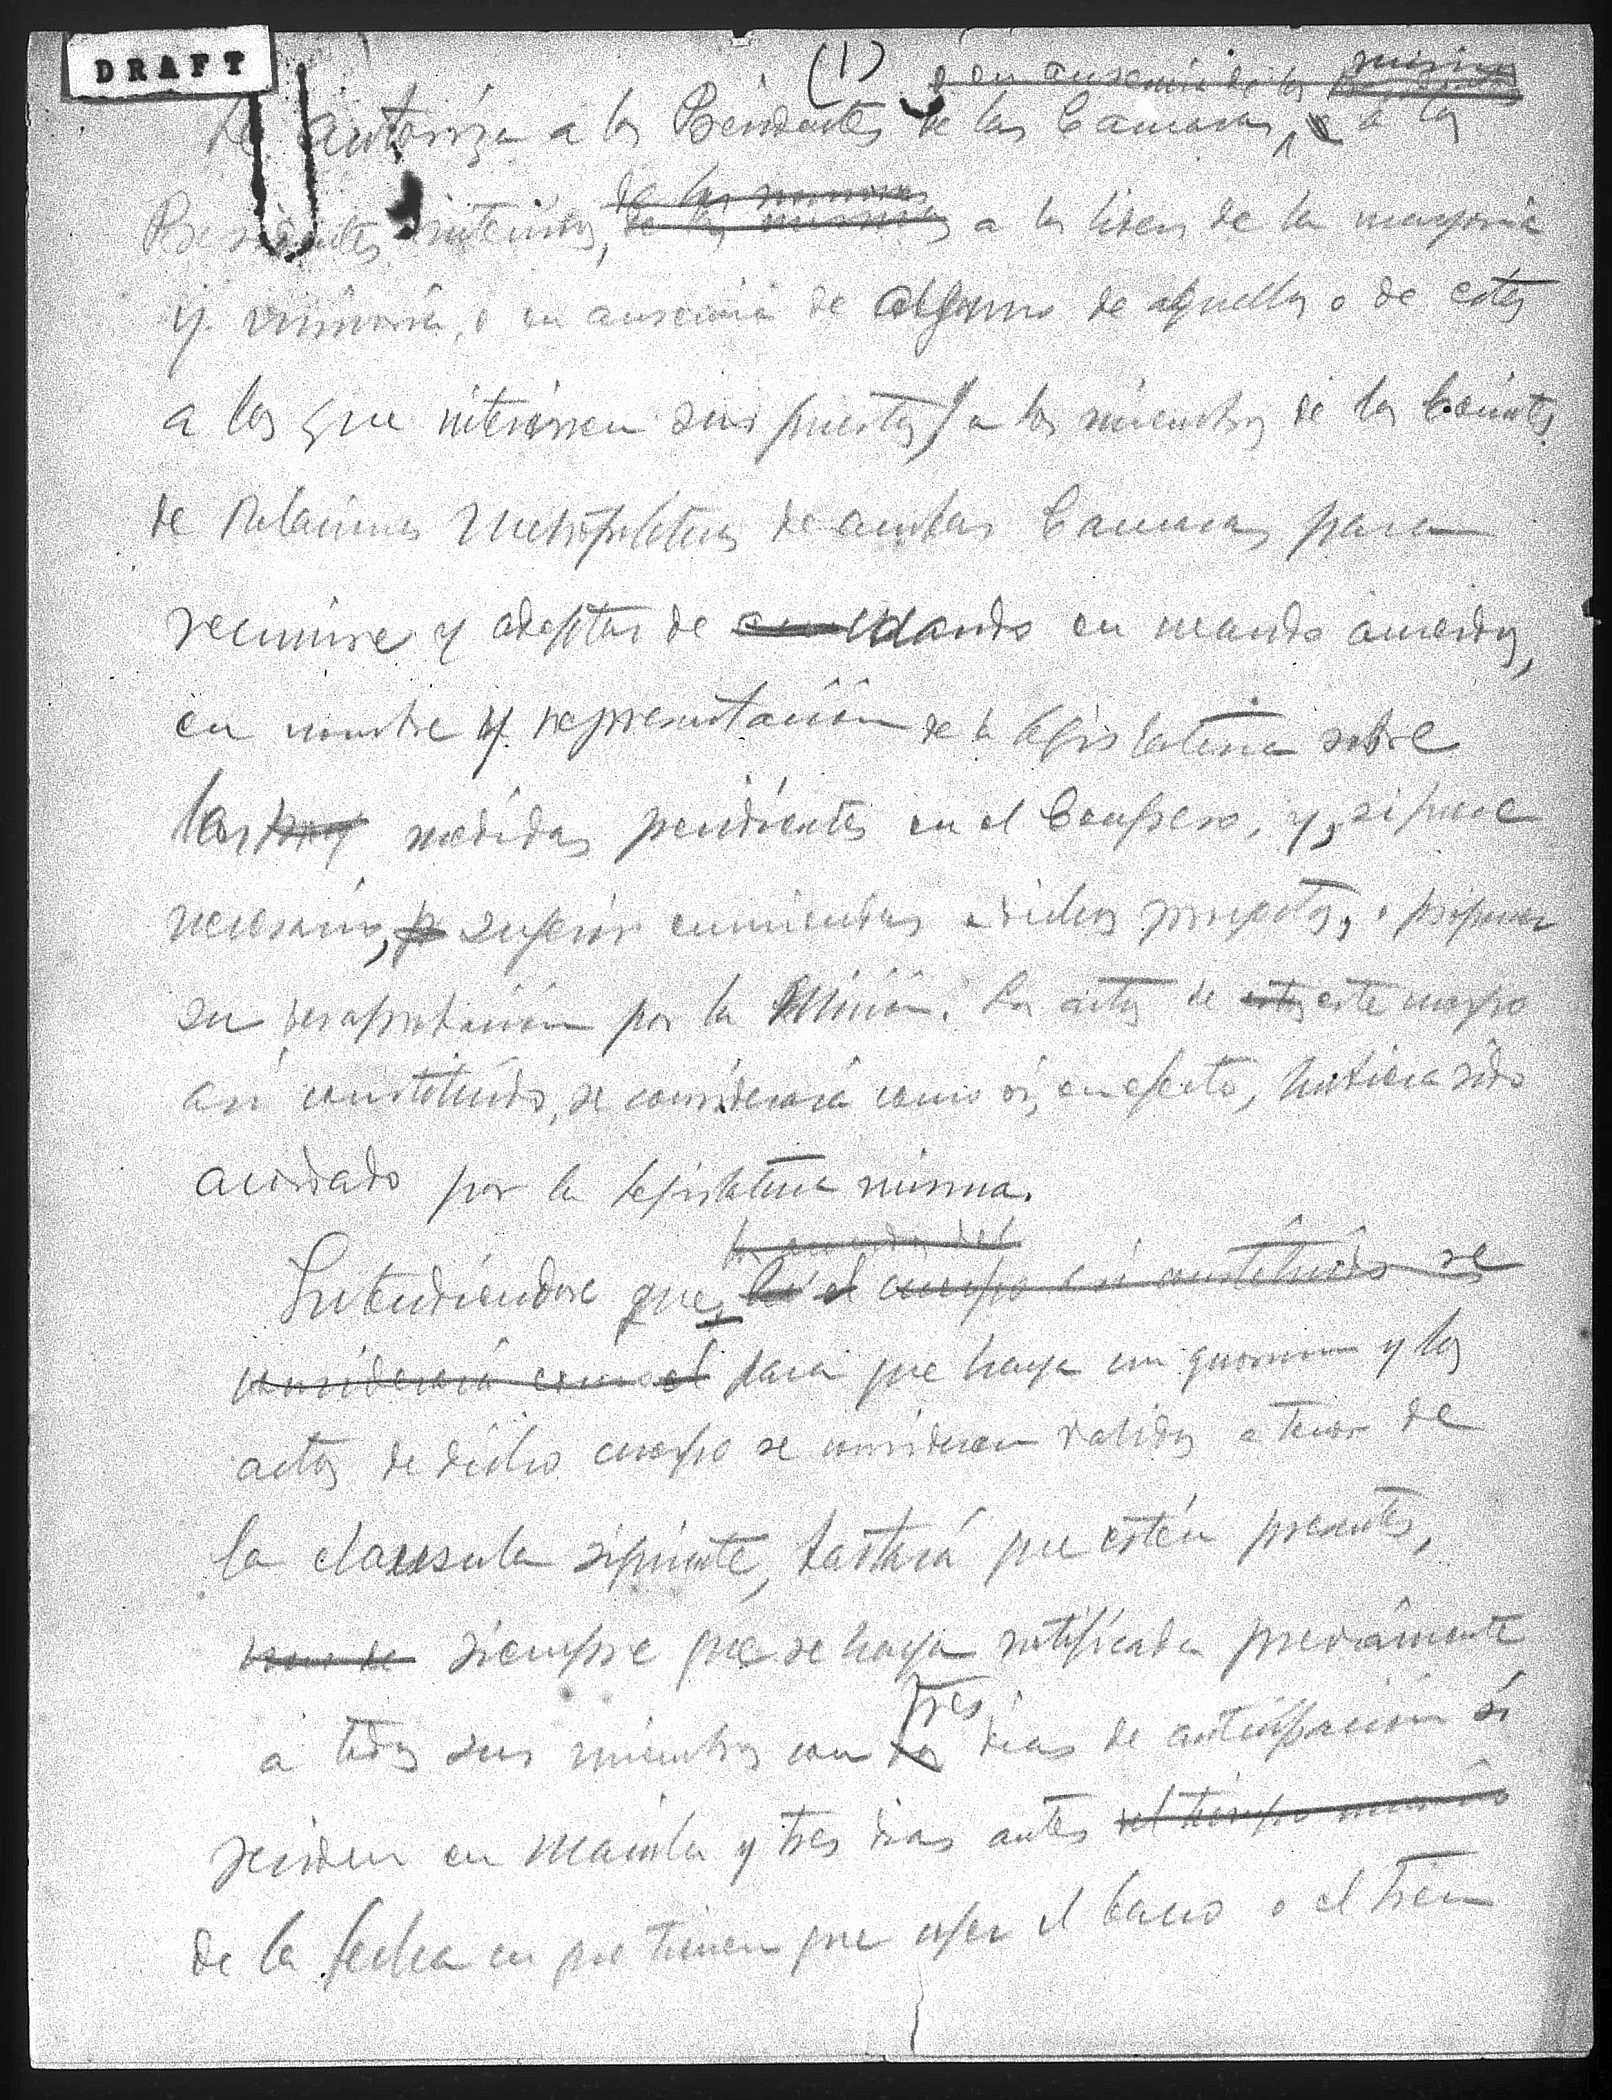 DRAFT
(1)
o en ausencia de los mismos
Se autoriza a los Presidentes de las Camaras, o a los
de los mismos
Presidentes interinos, a los lideres de la mayoria
y minoria, o en ausencia de alguno de aquellos o de estos
a los que interinen sus puestos, y a los miembros de los Comites
de Relaciones Metropoliticas de ambas Camaras para
reunirse y adoptar de cuando en cuando acuerdos,
en nombre y representación de la legislatura sobre
las medidas pendientes en el Congreso, y, si fuere
necesario, sugerir enmiendas a dichos proyectos, o proponer
su desaprobación por la misión. Los actos de estos este cuerpo
asi constituido, se considerará como si, en efecto, hubiera sido
acordado por la legislatura misma.
los acuerdos del
Entendiendose que, el cuerpo asi constituido se
considerará como el para que haya un quorum y los
actos de dicho cuerpo se consideren validos a tenor de
la clausula siguiente, bastará que estén presentes,
siempre que se haya notificada previamente
tres
a todos sus miembros con dos dias de anticipación si
residen en Manila y tres dias antes del tiempo
de la fecha en que tienen que coger el barco o el tren